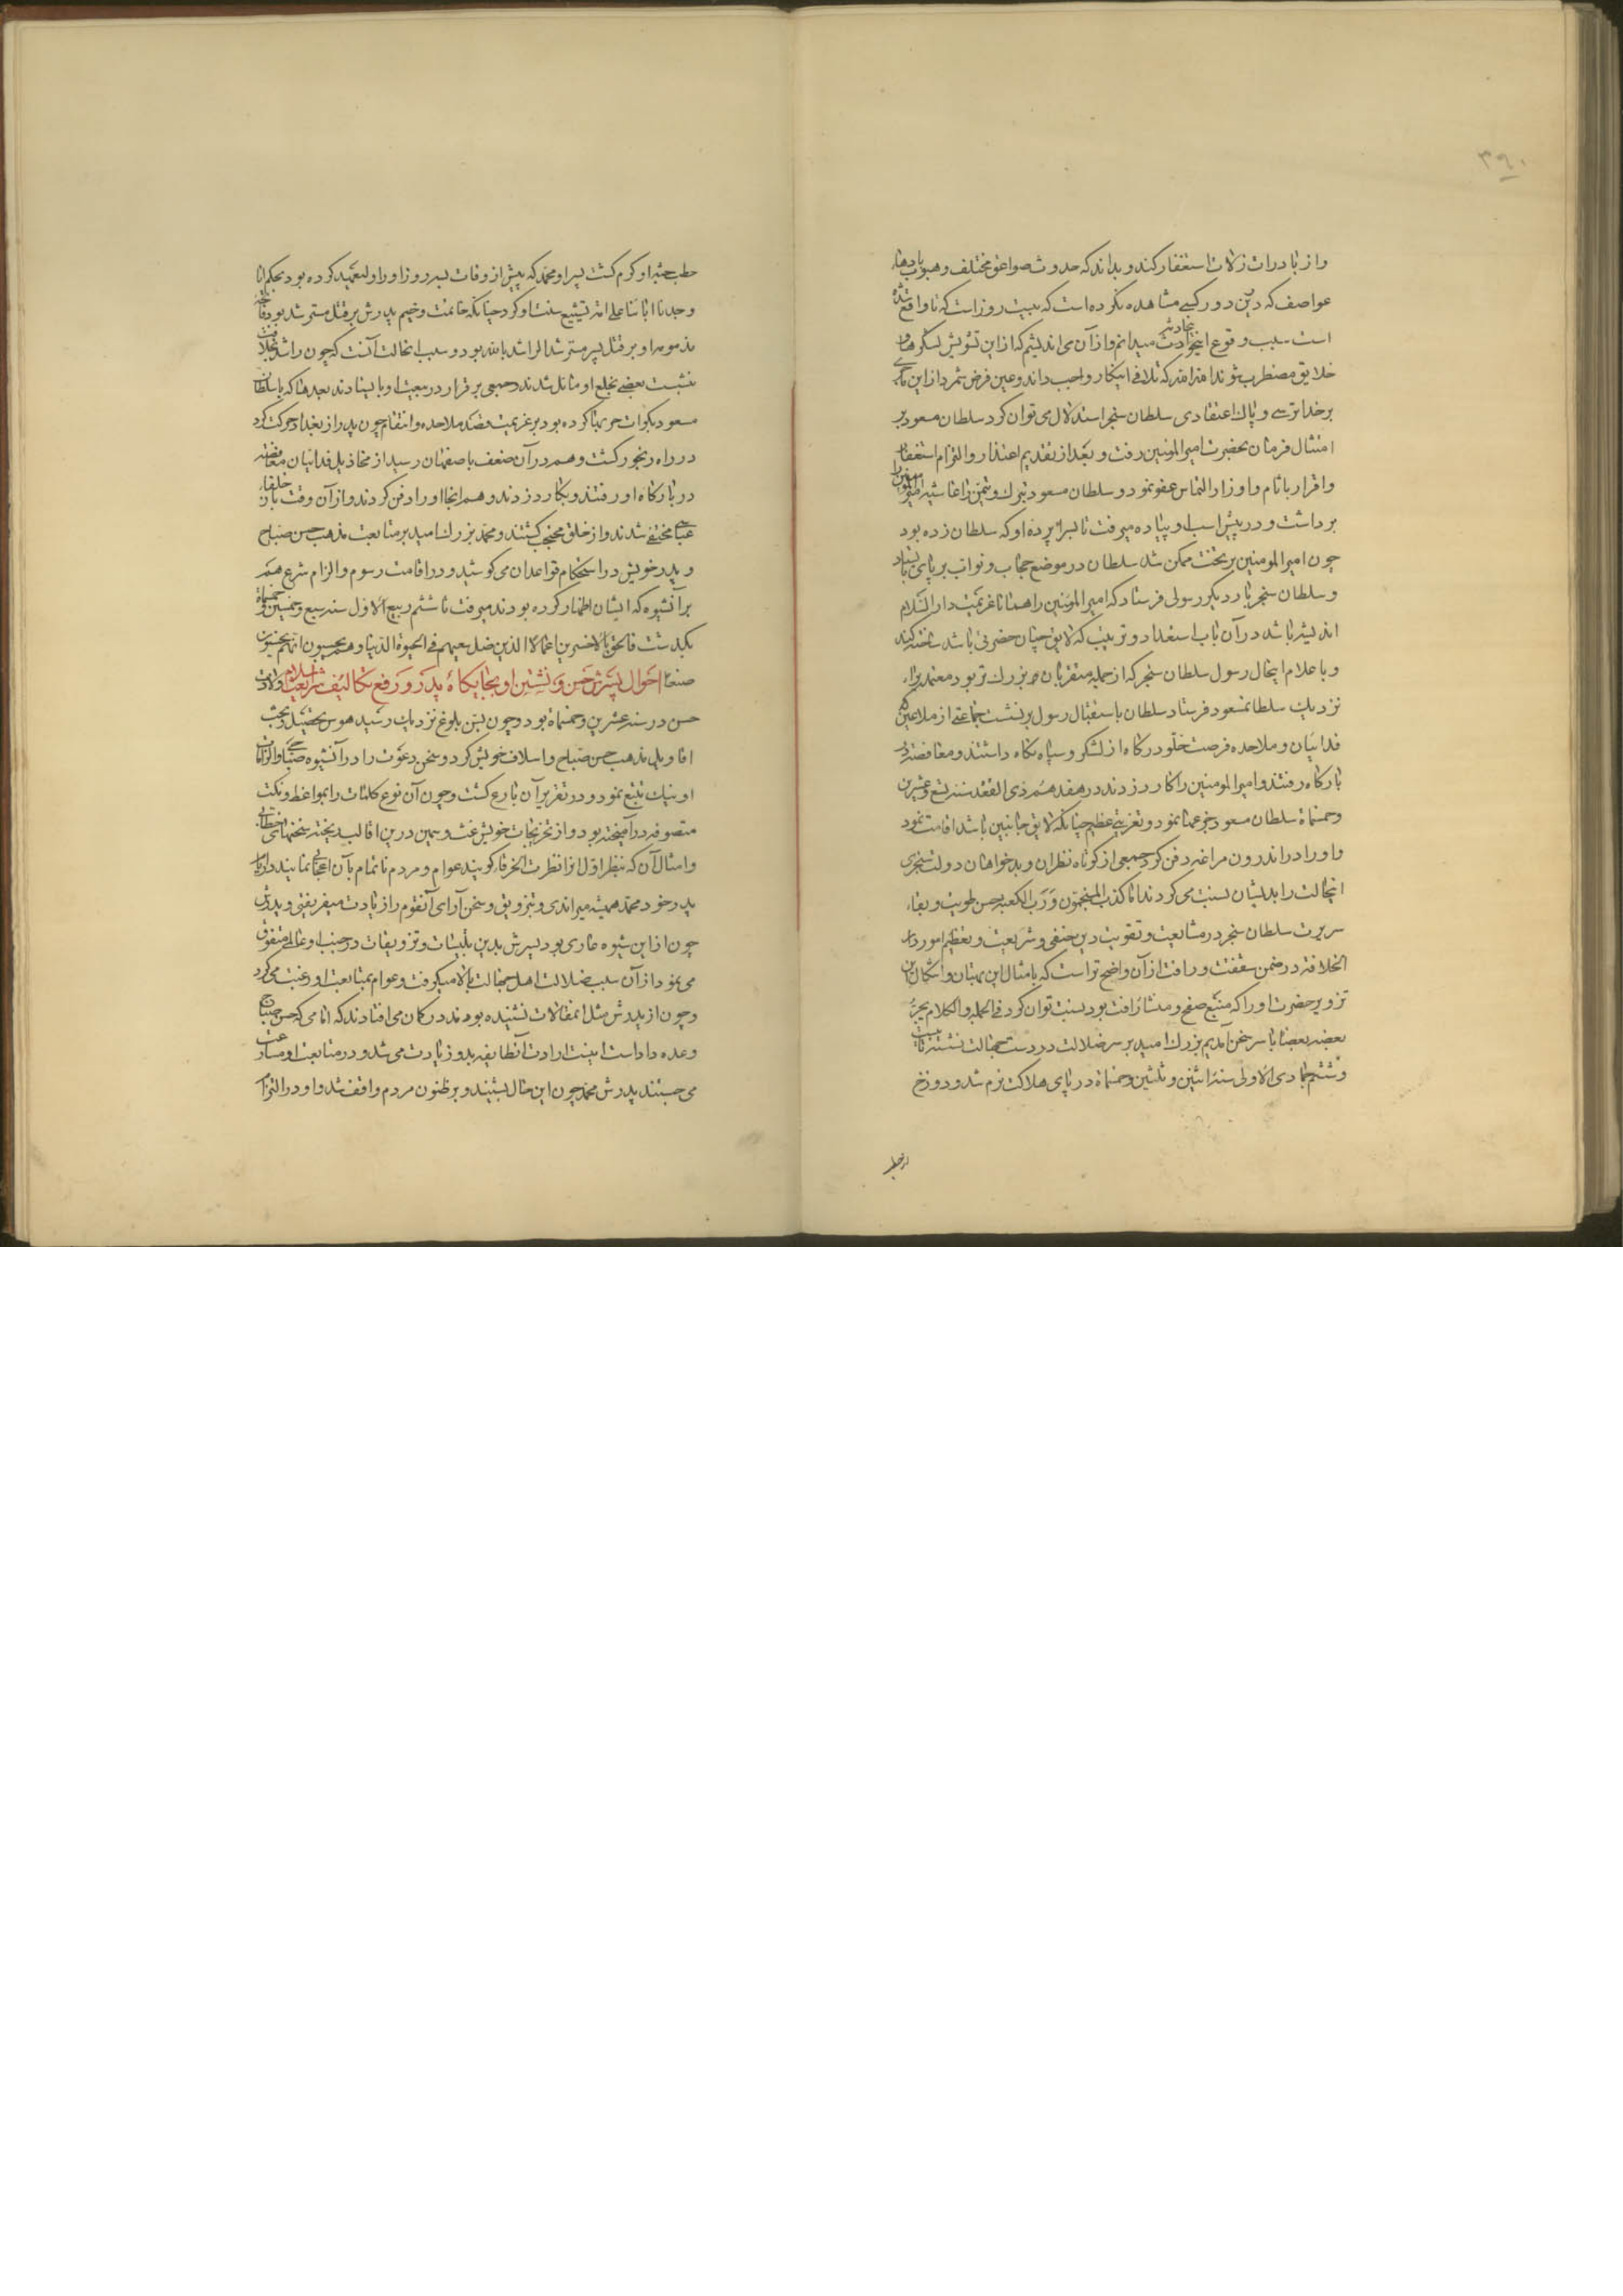 ۳۹۰
و از بادرات زلات استغفار کند و بداند که حدوث صواعق مختلف و هبوب بادهاء
عواصف که درین دور کسی مشاهده نکرده است که بیست روز است که تا واقع شده
است سبب وقوع اینحوادث حادثه میدانم و از آن می اندیشم که از این تشویش لشکرها و
خلایق مضطرب شوند الله الله که تلافی اینکار واجب داند و عین فرض شمرد از این
بر خدا ترسی و پاک اعتقادی سلطان سنجر استدلال می توان کرد سلطان مسعود بر
امتثال فرمان بحضرت امیر المومنین رفت و بعد از تقدیم اعتذار و التزام استغفار
و اقرار باثام و اوزار التماس عفو نمود و سلطان مسعود تبرک و تیمن را غاشیه امیر المومنین را
برداشت و در پیش اسب او پیاده میرفت تا بسراپرده او که سلطان زده بود
چون امیر المومنین بر تخت ممکن شد سلطان در موضع حجاب و نواب بر پای بایستاد
و سلطان سنجر بار دیگر رسولی فرستاد که امیر المومنین را همانا عزیمت دار السلام
اندیشه باشد در آن باب استعداد و ترتیب که لایق چنان حضرتی باشد ساخته کنند
و باعلام اینحال رسول سلطان سنجر که از جمله مقربان او بزرک تر بود معتمد براء
نزدیک سلطان مسعود فرستاد سلطان باستقبال رسول برنشست جماعتی از ملاعین که
فدائیان و ملاحده فرصت خلو درکاه از لشکر و سپاه نکاه داشتند و مغافصة در
بارکاه رفتند و امیر المومنین را کارد زدند در هفدهم ذی القعده سنه تسع و عشرین
و خمسماة سلطان مسعود جزعها نمود و تعزیتی عظیم چنانکه لایق جانبین باشد اقامت نمود
و او را در اندرون مراغه دفن کرد جمعی از کوتاه نظران و بدخواهان دولت سنجری
اینحالت را بدیشان نسبت می کردند اما کذب المنجمون و رب الکعبه حسن طویت و نقاء
سریرت سلطان سنجر در متابعت و تقویت دین حنفی و شریعت و تعظیم امور دار
الخلافة در ضمن شفقت و رافت از آن واضح تر است که بامثال این بهتان و اشکال این
تزویر حضرت او را که منبع صفح و منشأ رافت بود نسبت توان کرد فی الجمله و الکلام یجر
بعضه بعضا با سر سخن آمدیم بزرک امید بر سر ضلالت در دست جهالت نشسته تا بیست
و ششم جمادی الاولی سنه اثنین و ثلثین و خمسماة در پای هلاکت نرم شد و دوزخ
از حطب
حطب جثه او کرم کشت پسر او محمد که پیش از وفات بسه روز او را ولیعهد کرده بود بحکم انا
وجدنا آبائنا علی امة تشییع سنت او کرد چنانکه خاتمت وخیم پدرش بر قتل مسترشد بود فاتحه
مذمومه او بر قتل پسر مسترشد الراشد بالله بود و سبب انحالت آنست که چون راشد بخلافت
بنشست بعضی بخلع او مائل شدند و جمعی بر قرار در بیعت او بایستادند بعد ما که با سلطان
مسعود بکرات حربها کرده بود بر عزیمت قصد ملاحده و انتقام خون پدر از بغداد حرکت کرد
در راه رنجور کشت و هم در آن ضعف باصفهان رسید از مخاذیل فدائیان مغافصة
در بارکاه او رفتند و بکارد زدند و هم آنجا او را دفن کردند و از آن وقت باز خلفاء
عباسی مختفی شدند و از خلق محتجب کشتند و محمد بزرک امید بر متابعت مذهب حسن صباح
و پدر خویش در استحکام قواعد آن می کوشید و در اقامت رسوم و الزام شرع هم
بر آنشیوه که ایشان اظهار کرده بودند میرفت تا ششم ربیع الاول سنه سبع و خمسین و خمسماة
بکذشت فالحق بالاخسرین اعمالا الذین ضل سعیهم فی الحیوة الدنیا و هم یحسبون انهم یحسنون
صنعا احوال پسرش حسن و نشستن او بجایکاه پدر و رفع تکالیف شرایع اسلام ولادت
حسن در سنه عشرین و خمسماة بود و چون بسن بلوغ نزدیک رسید هوس تحصیل و بحث
اقاویل مذهب حسن صباح و اسلاف خویش کرد و سخن دعوت را در آنشیوه صباحی و الزامات
او نیک تتبع نمود و در تقریر آن بارع کشت و چون آن نوع کلمات را بمواعظ و نکت
متصوفه در آمیخته بود و از تخریجات خویش غث و سمین در این اقالب ریخته سخنهای خطابی
و امثال آن که بنظر اول از انظرت الخرقاء کویند عوام و مردم ناتمام بآن اعجاب نمایند در ایام
پدر خود محمد همیشه میراندی و بتزویق و سخن آرای آنقوم را زیادت میفریفتی و پدرش
چون از این شیوه عاری بود پسرش بدین تلبیسات و تزویقات در جنب او عالمی متفوق
می نمود از آن سبب ضلالت اهل جهالت بالا میکرفت و عوام بمتابعت او رغبت می کرد
و چون از پدرش مثل اینمقالات نشنیده بودند در کمان می افتادند که امامی که حسن صباح
وعده داد است اینست ارادت آنطایفه بدو زیادت می شد و در متابعت او مسارعت
می جستند پدرش محمد چون این حال بشنید و بر ظنون مردم واقف شد و او در التزام